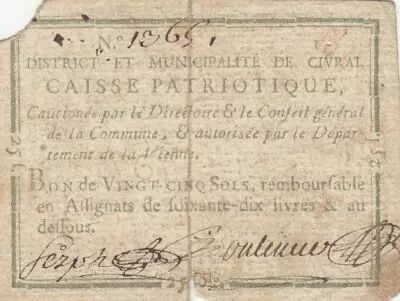 N.° 1365,
DISTRICT ET MUNICIPALITÉ DE CIVRAI.
CAISSE PATRIOTIQUE,
Cautionée par le Directoire & le Conseil général
de la Commune, & autorisée par le Dépar-
tement de la Vienne.
BON de VINGT-CINQ SOLS, remboursable
en Assignats de soixante-dix livres & au
dessous.